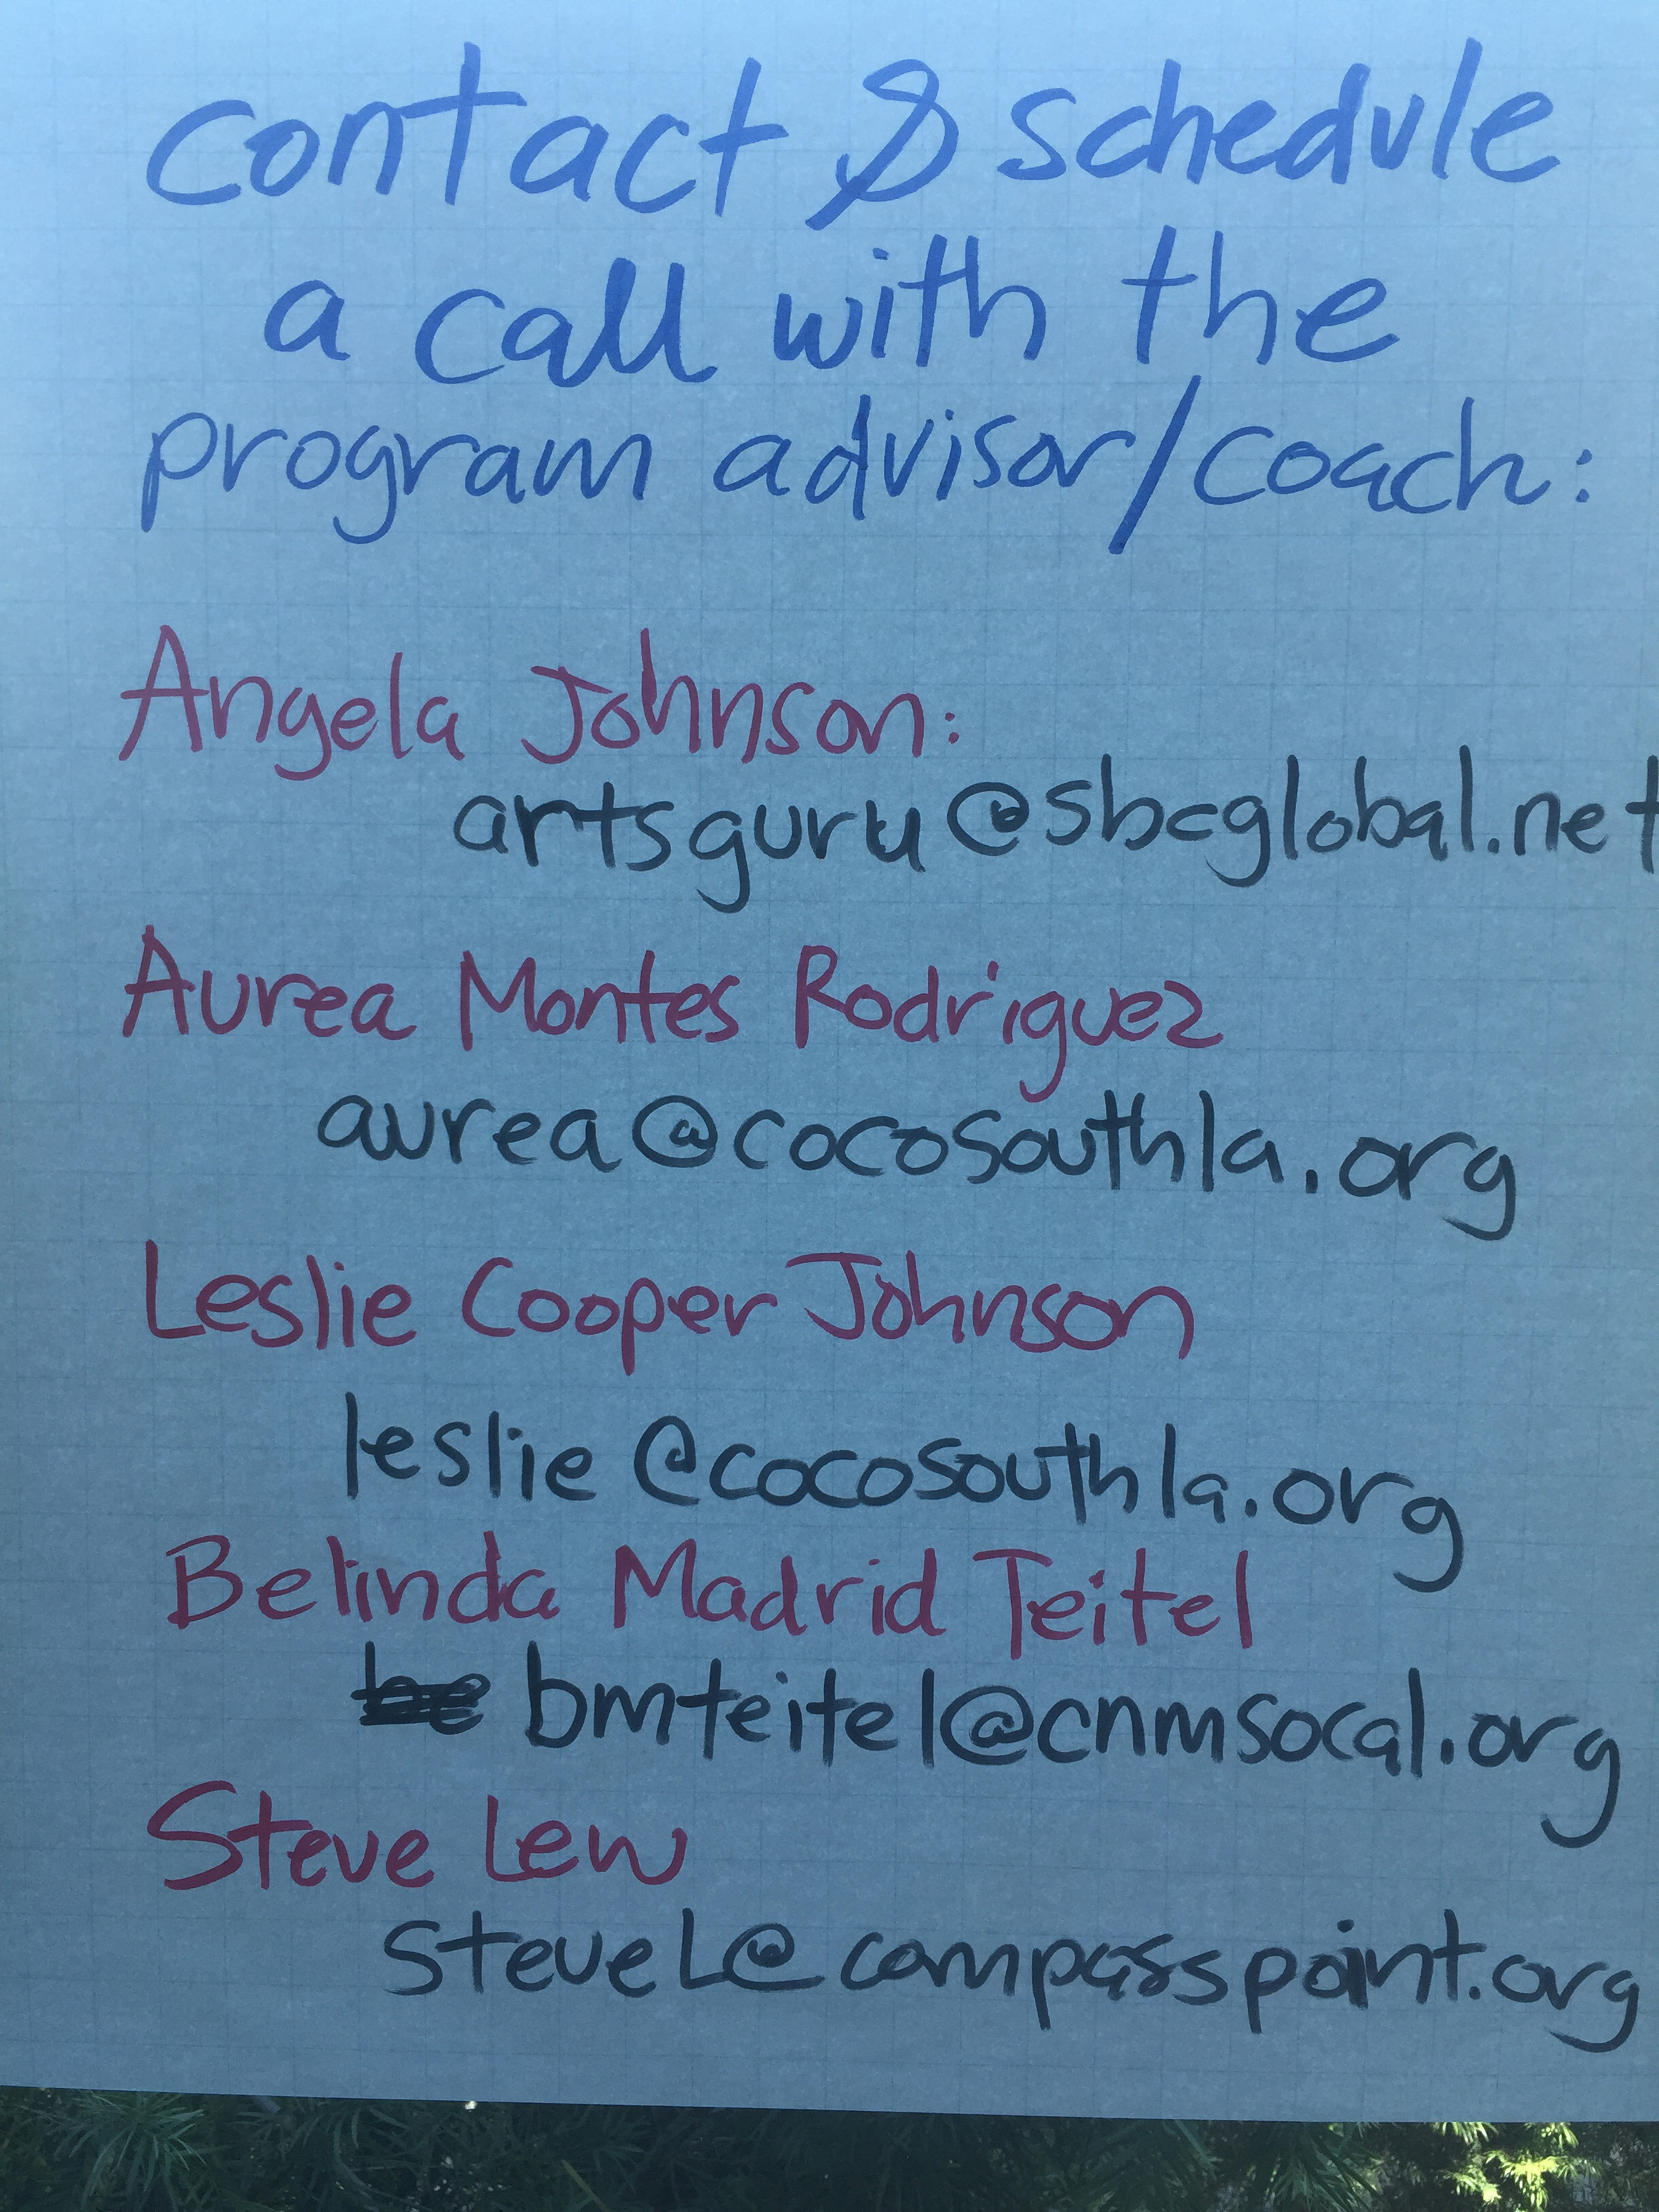 contact & schedule
a call with the
program advisor/coach:
Angela Johnson:
artsguru@sbcglobal.net
Aurea Montes Rodriguez
aurea@cocosouthla.org
Leslie Cooper Johnson
leslie@cocosouthla.org
Belinda Madrid Teitel
bmteitel@cnmsocal.org
Steve Lew
SteveL@compasspoint.org